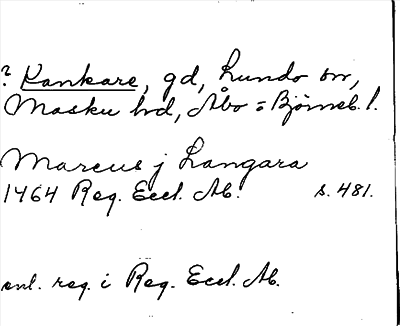 ? Kankare, gd, Lundo sn,
Masku hd, Åbo = Björneb. l.
Marcus j Langara
1464 Reg. Eccl. Ab. s. 481.
enl. reg. i Reg. Eccl. Ab.